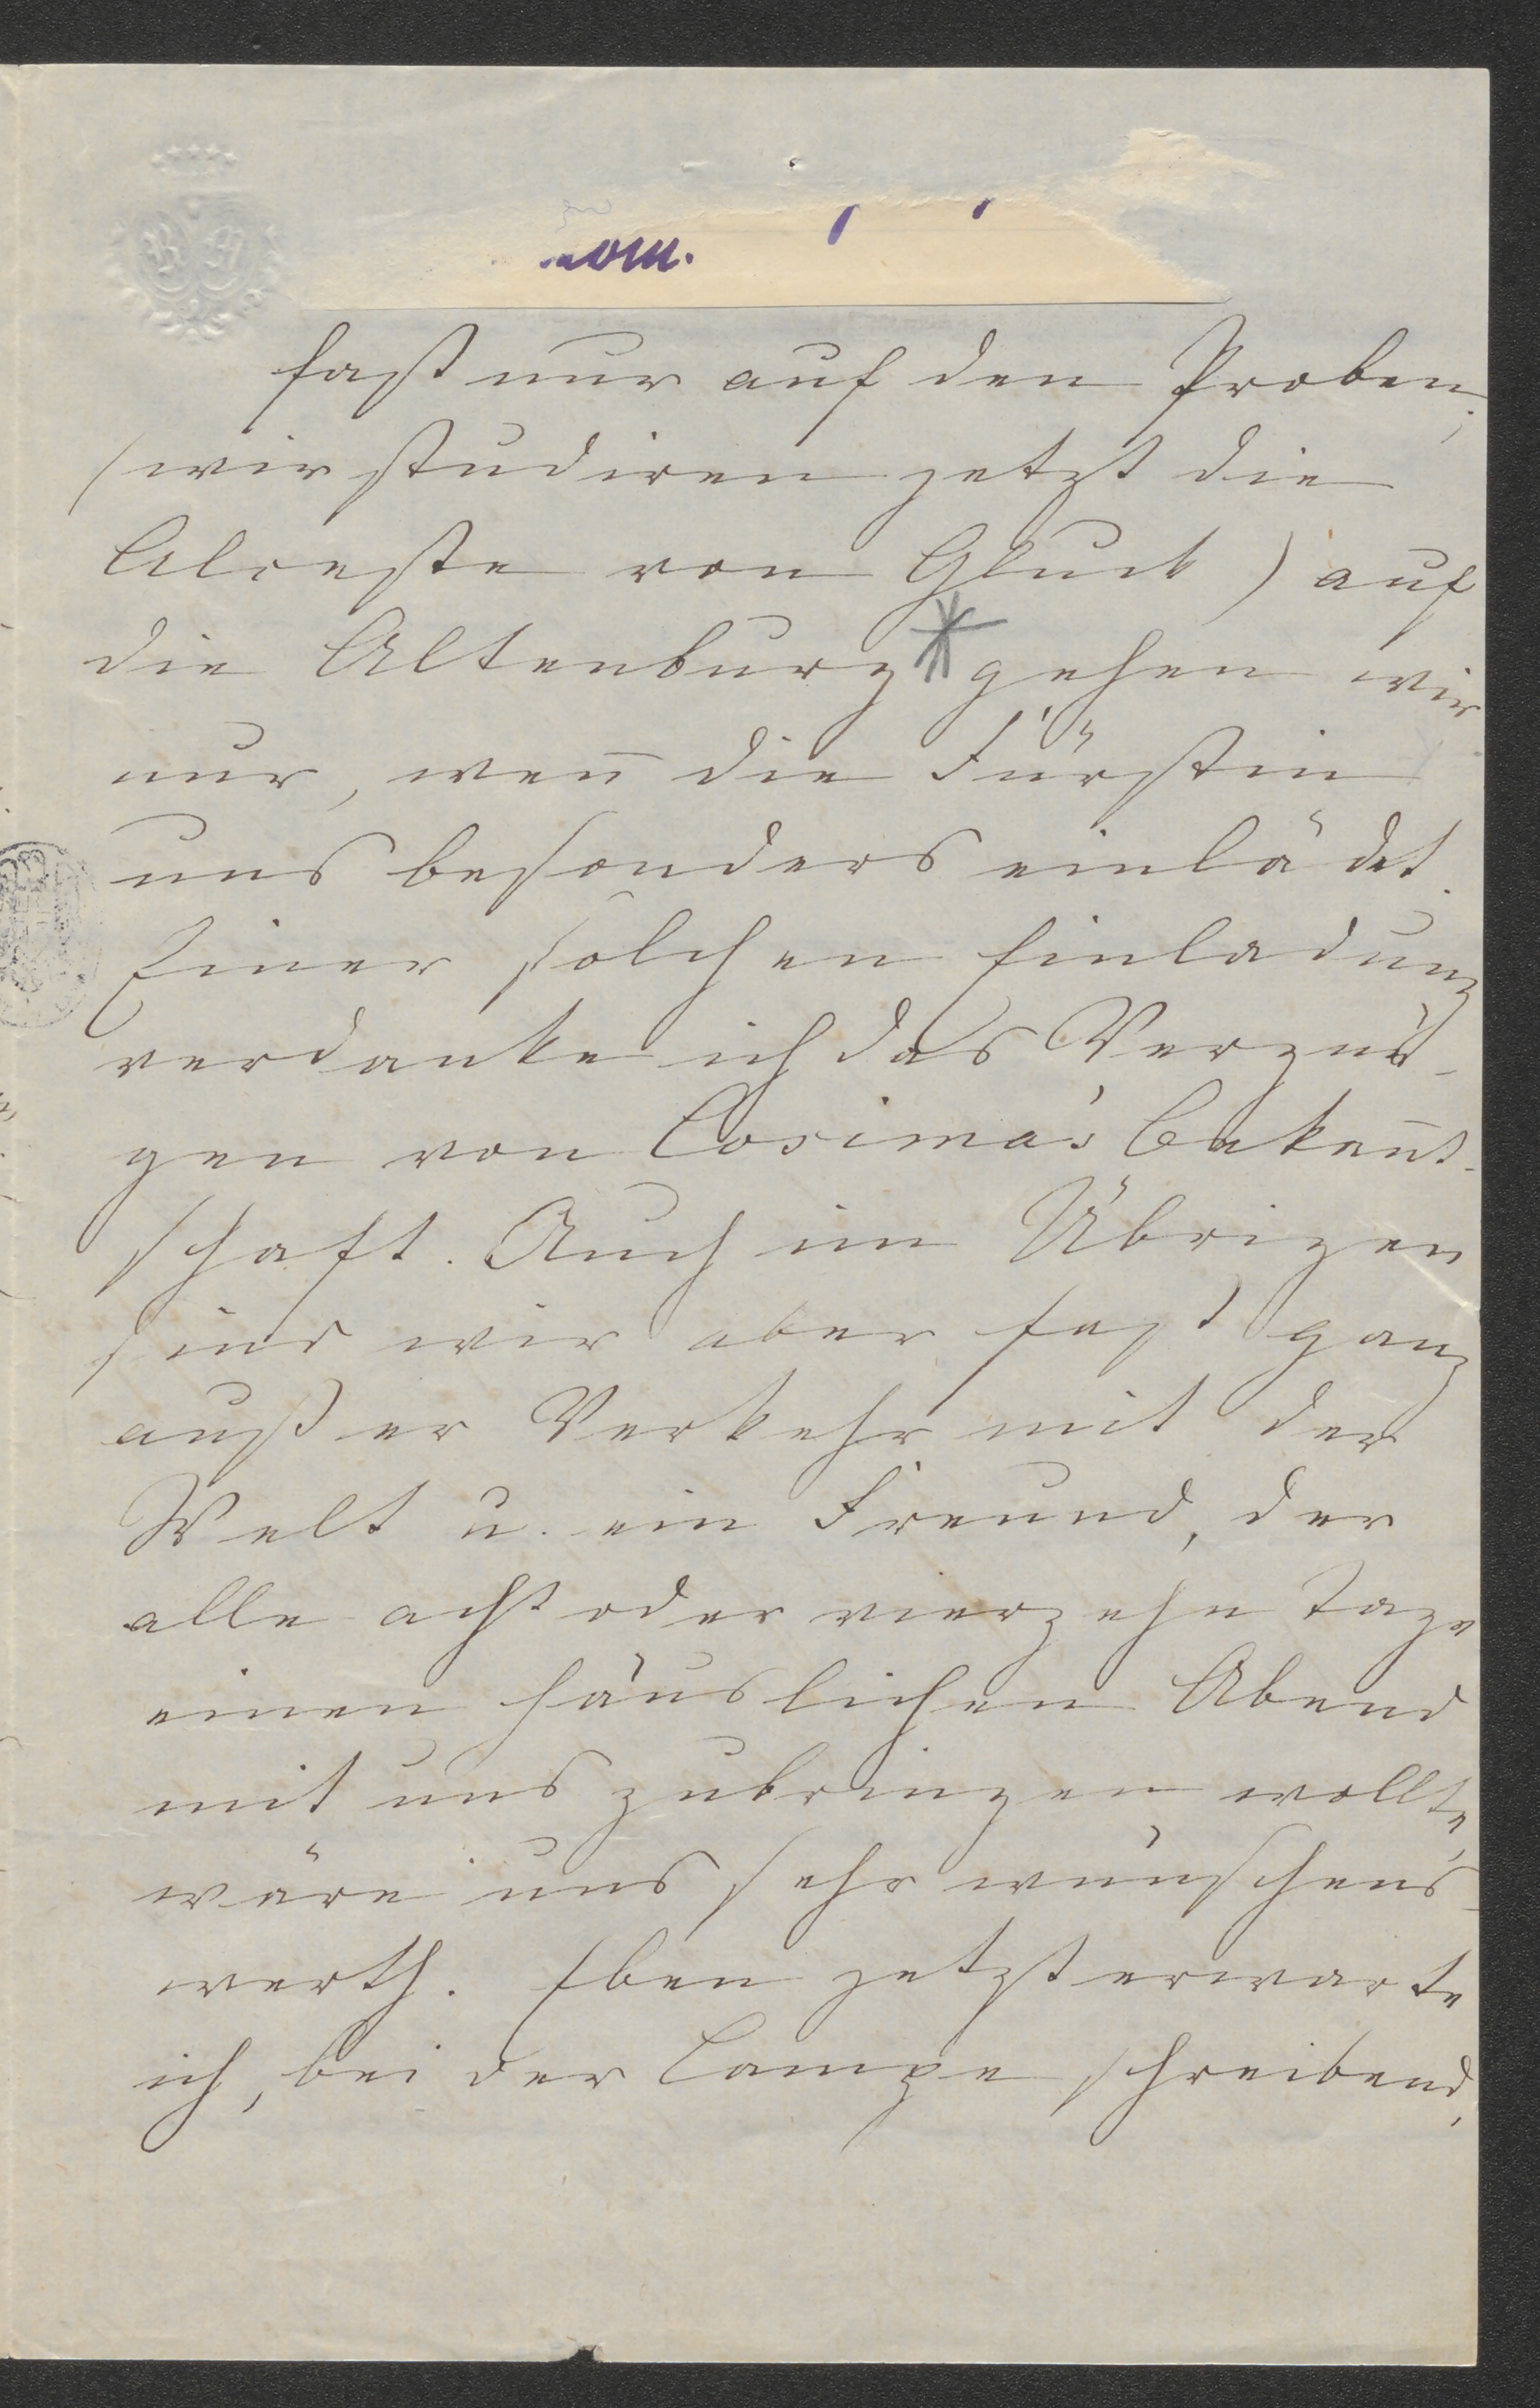 fast nur auf den Proben;
(wir studiren jetzt die
Alceste von Gluck) auf
die Altenburg * gehen wir
nur, weñ die Fürstin
uns besonders einlädet.
Einer solchen Einladung
verdanke ich das Vergnü-
gen von Cosima's Bekañt-
schaft. Auch im Übrigen
sind wir aber fast ganz
außer Verkehr mit der
Welt u. ein Freund, der
alle acht oder vierzehn Tage
einen häuslichen Abend
mit uns zubringen wollte,
wäre uns sehr wünschens-
werth. Eben jetzt erwarte
ich, bei der Lampe schreibend,